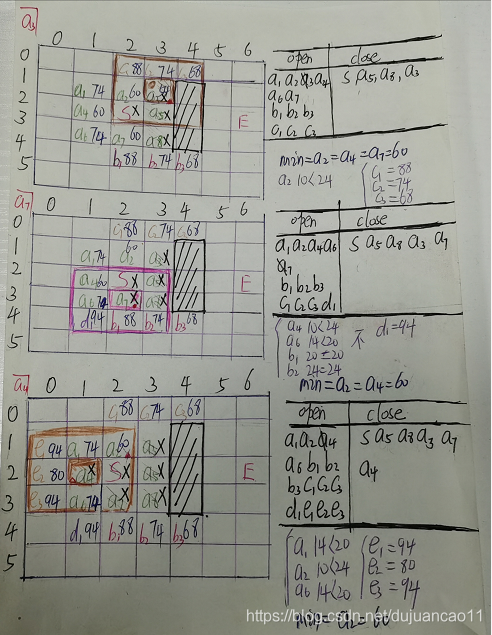 a3
0 1 2 3 4 5 6
0
1
2
3
4
5
c1 88 c2 74 c3 68
a1 74 a2 60
a4 60 S X a5 X
E
a6 74 a7 60 a8 X
b1 88 b2 74 b3 68
open close
a1 a2 a3 a4 S a5, a8, a3
a6 a7
b1 b2 b3
c1 c2 c3
min=a2=a4=a7=60
a2 10<24
c1=88
c2=74
c3=68
a7
0 1 2 3 4 5 6
0
1
2
3
4
c1 88 c2 74 c3 68
a1 74 a2 60 a3 X
a4 60 S X a5 X
E
a6 74 a7 X a8 X
d1 94 b1 88 b2 74 b3 68
open close
a1 a2 a4 a6 S a5 a8 a3 a7
a7
b1 b2 b3
c1 c2 c3 d1
a4 10<24
a6 14<20
b1 20=20
b2 24=24
不 d1=94
min=a2=a4=60
a4
0 1 2 3 4 5 6
0
1
2
3
4
5
c1 88 c2 74 c3 68
e1 94 a1 74 a2 60 a3 X
e2 80 a4 X S X a5 X
E
e3 94 a6 74 a7 X a8 X
d1 94 b1 88 b2 74 b3 68
open close
a1 a2 a4 S a5 a8 a3 a7
a6 b1 b2 a4
b3 c1 c2 c3
d1 e1 e2 e3
a1 14<20
a2 10<24
a6 14<20
e1=94
e2=80
e3=94
min=a2=60
https://blog.csdn.net/dujuancao11